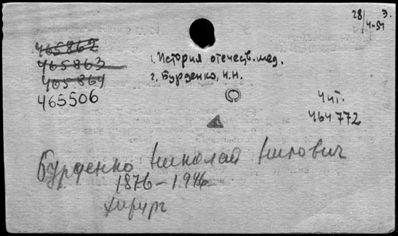 28/ э.
4-51
465862
465863
465864
465506
1. История отечеств. мед.
2. Бурденко, Н.Н.
4 чт.
464772
Бурденко Николай Нилович
1876-1946
хирург